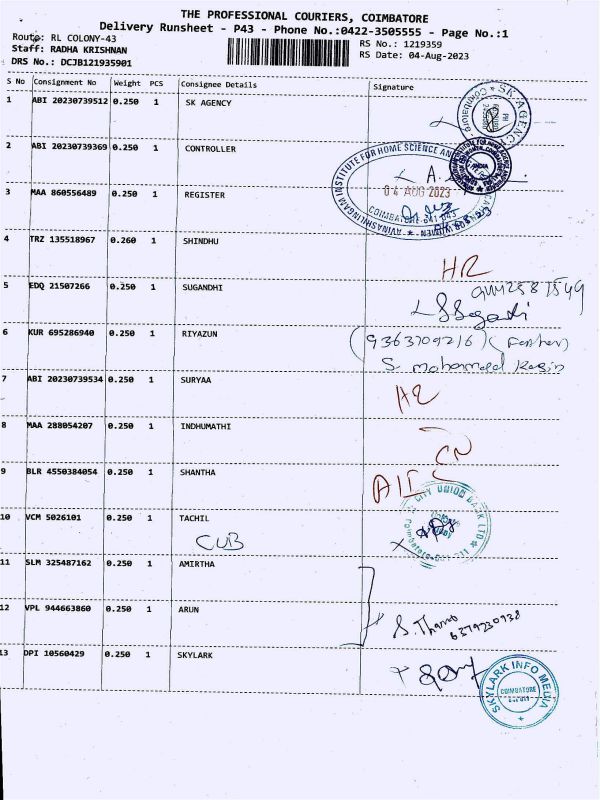 THE PROFESSIONAL COURIERS, COIMBATORE
Delivery Runsheet - P43 - Phone No.:0422-3505555 - Page No.:1
Route: RL COLONY-43
RS No.: 1219359
Staff: RADHA KRISHNAN
RS Date: 04-Aug-2023
DRS No.: DCJB121935901
S No Consignment No Weight PCS Consignee Details Signature
1 ABI 20230739512 0.250 1 SK AGENCY
SK AGENCY
Coimbatore
2 ABI 20230739369 0.250 1 CONTROLLER
AVINASHILINGAM INSTITUTE FOR HOME SCIENCE AND
FOR WOMEN
04 AUG 2023
COIMBATORE-641 043
3 MAA 860556489 0.250 1 REGISTER
4 TRZ 135518967 0.260 1 SHINDHU
HR
5 EDQ 21507266 0.250 1 SUGANDHI
6 KUR 695286940 0.250 1 RIYAZUN
(9363709216) (Father)
S. Mohamed Kasim
7 ABI 20230739534 0.250 1 SURYAA
8 MAA 288054207 0.250 1 INDHUMATHI
CN
9 BLR 4550384054 0.250 1 SHANTHA
CITY UNION BANK LTD
10 VCM 5026101 0.250 1 TACHIL
CUB
11 SLM 325487162 0.250 1 AMIRTHA
12 VPL 944663860 0.250 1 ARUN
6379230938
13 DPI 10560429 0.250 1 SKYLARK
SKYLARK INFO MEDIA
COIMBATORE